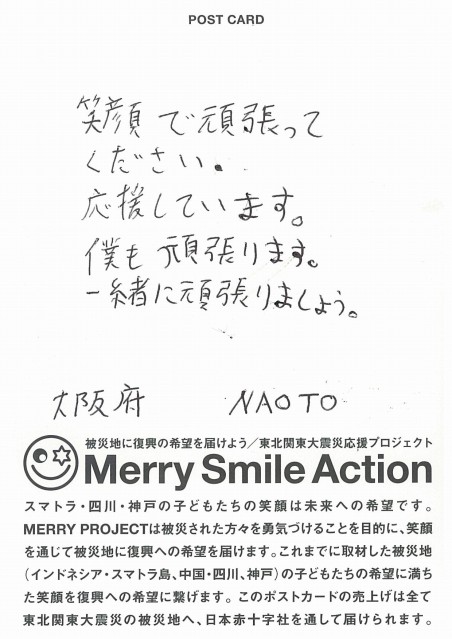 POST CARD
笑顔で頑張って
ください。
応援しています。
僕も頑張ります。
一緒に頑張りましょう。
大阪府 NAOTO
被災地に復興の希望を届けよう／東北関東大震災応援プロジェクト
Merry Smile Action
スマトラ・四川・神戸の子どもたちの笑顔は未来への希望です。
MERRY PROJECTは被災された方々を勇気づけることを目的に、笑顔
を通じて被災地に復興への希望を届けます。これまでに取材した被災地
（インドネシア・スマトラ島、中国・四川、神戸）の子どもたちの希望に満ち
た笑顔を復興への希望に繋げます。このポストカードの売上げは全て
東北関東大震災の被災地へ、日本赤十字社を通して届けられます。